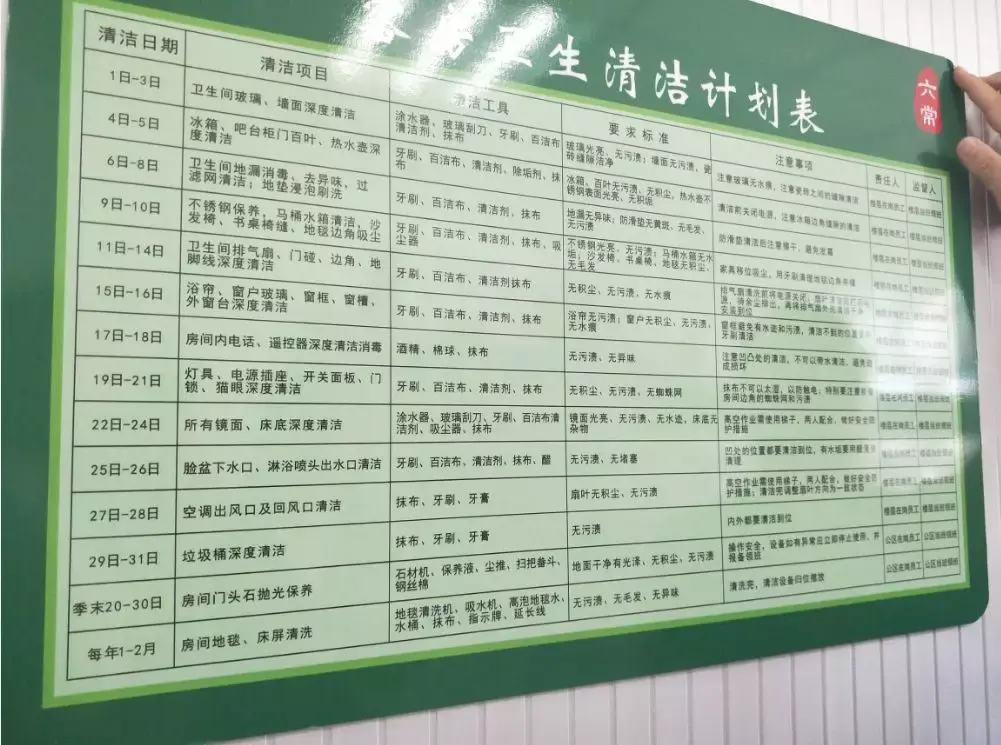 生清洁计划表
六常
清洁日期
清洁项目
清洁工具
要求标准
注意事项
责任人
监督人
1日-3日
卫生间玻璃、墙面深度清洁
涂水器、玻璃刮刀、牙刷、百洁布
清洁剂、抹布
玻璃光亮、无污渍；墙面无污渍、瓷
砖缝隙洁净
注意玻璃无水痕，注意瓷砖之间的缝隙清洁
楼层在岗员工
楼层当班领班
4日-5日
冰箱、吧台柜门百叶、热水壶深
度清洁
牙刷、百洁布、清洁剂、除垢剂、抹
冰箱、百叶无污渍、无积尘，热水壶不
锈钢表面光亮、无积垢
清洁前关闭电源，注意冰箱边角缝隙的清洁
楼层在岗员工
楼层当班领班
6日-8日
卫生间地漏消毒、去异味，过
滤网清洁；地垫浸泡刷洗
牙刷、百洁布、清洁剂、抹布
地漏无异味；防滑垫无黄斑、无毛发、
无污渍
防滑垫清洁后注意晾干，避免发霉
楼层在岗员工
楼层当班领班
9日-10日
不锈钢保养，马桶水箱清洁，沙
发椅、书桌椅缝、地毯边角吸尘
牙刷、百洁布、清洁剂、抹布、吸
尘器
不锈钢光亮、无污渍；马桶水箱无水
垢；沙发椅、书桌椅、地毯无积尘、
无毛发
家具移位吸尘，用牙刷清理地毯边角
楼层在岗员工
楼层当班领班
11日-14日
卫生间排气扇、门碰、边角、地
脚线深度清洁
牙刷、百洁布、清洁剂抹布
无积尘、无污渍、无水痕
排气扇清洗前将电源关闭；
安装到位
楼层在岗员工
15日-16日
浴帘、窗户玻璃、窗框、窗槽、
外窗台深度清洁
牙刷、百洁布、清洁剂、抹布
浴帘无污渍；窗户无积尘、无污渍、
无水痕
窗框避免有水迹和污渍，清洁不到的位置
牙刷清洁
楼层在岗员工
17日-18日
房间内电话、遥控器深度清洁消毒
酒精、棉球、抹布
无污渍、无异味
注意凹凸处的清洁，不可以带水清洁，避免造
成损坏
楼层在岗员工
19日-21日
灯具、电源插座、开关面板、门
锁、猫眼深度清洁
牙刷、百洁布、清洁剂、抹布
无积尘、无污渍、无蜘蛛网
抹布不可以太湿，以防触电；特别要注意
房间边角的蜘蛛网和污渍
楼层在岗员工
楼层当班领班
22日-24日
所有镜面、床底深度清洁
涂水器、玻璃刮刀、牙刷、百洁布清
洁剂、吸尘器、抹布
镜面光亮、无污渍、无水迹、床底无
杂物
高空作业需使用梯子，两人配合，做好安全防
护措施
楼层在岗员工
楼层当班领班
25日-26日
脸盆下水口、淋浴喷头出水口清洁
牙刷、百洁布、清洁剂、抹布、醋
无污渍、无堵塞
凹处的位置都要清洁到位，有水垢要用醋
清理
楼层在岗员工
楼层当班领班
27日-28日
空调出风口及回风口清洁
抹布、牙刷、牙膏
扇叶无积尘、无污渍
高空作业需使用梯子，两人配合，做好安全防
护措施；清洁完调整扇叶方向为一致状态
楼层在岗员工
楼层当班领班
29日-31日
垃圾桶深度清洁
抹布、牙刷、牙膏
无污渍
内外都要清洁到位
楼层在岗员工
楼层当班领班
季末20-30日
房间门头石抛光保养
石材机、保养液、尘推、扫把畚斗、
钢丝棉
地面干净有光泽、无积尘、无污渍
操作安全，设备如有异常应立即停止使用，并
报备领班
公区在岗员工
公区当班领班
每年1-2月
房间地毯、床屏清洗
地毯清洗机、吸水机、高泡地毯水、
水桶、抹布、指示牌、延长线
无污渍、无毛发、无异味
清洗完，清洁设备归位摆放
公区在岗员工
公区当班领班